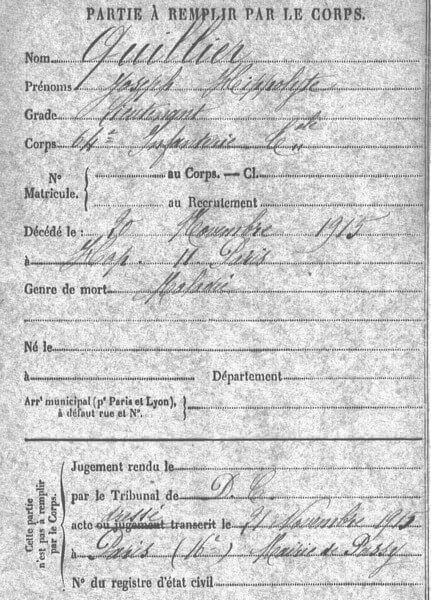 PARTIE À REMPLIR PAR LE CORPS.
Nom Quillier
Prénoms Joseph Hippolyte
Grade Lieutenant
Corps Infanterie Cale
N° Matricule. { au Corps. — Cl.
au Recrutement
Décédé le : Novembre 1915
à Hop. Paris
Genre de mort Maladie
Né le
à Département
Arrt municipal (pr Paris et Lyon), à défaut rue et N°.
Cette partie n'est pas à remplir par le Corps.
Jugement rendu le
par le Tribunal de D. C.
dressé
acte ou jugement transcrit le 21 Novembre 1915
à Paris (16e) Mairie de Passy
N° du registre d'état civil